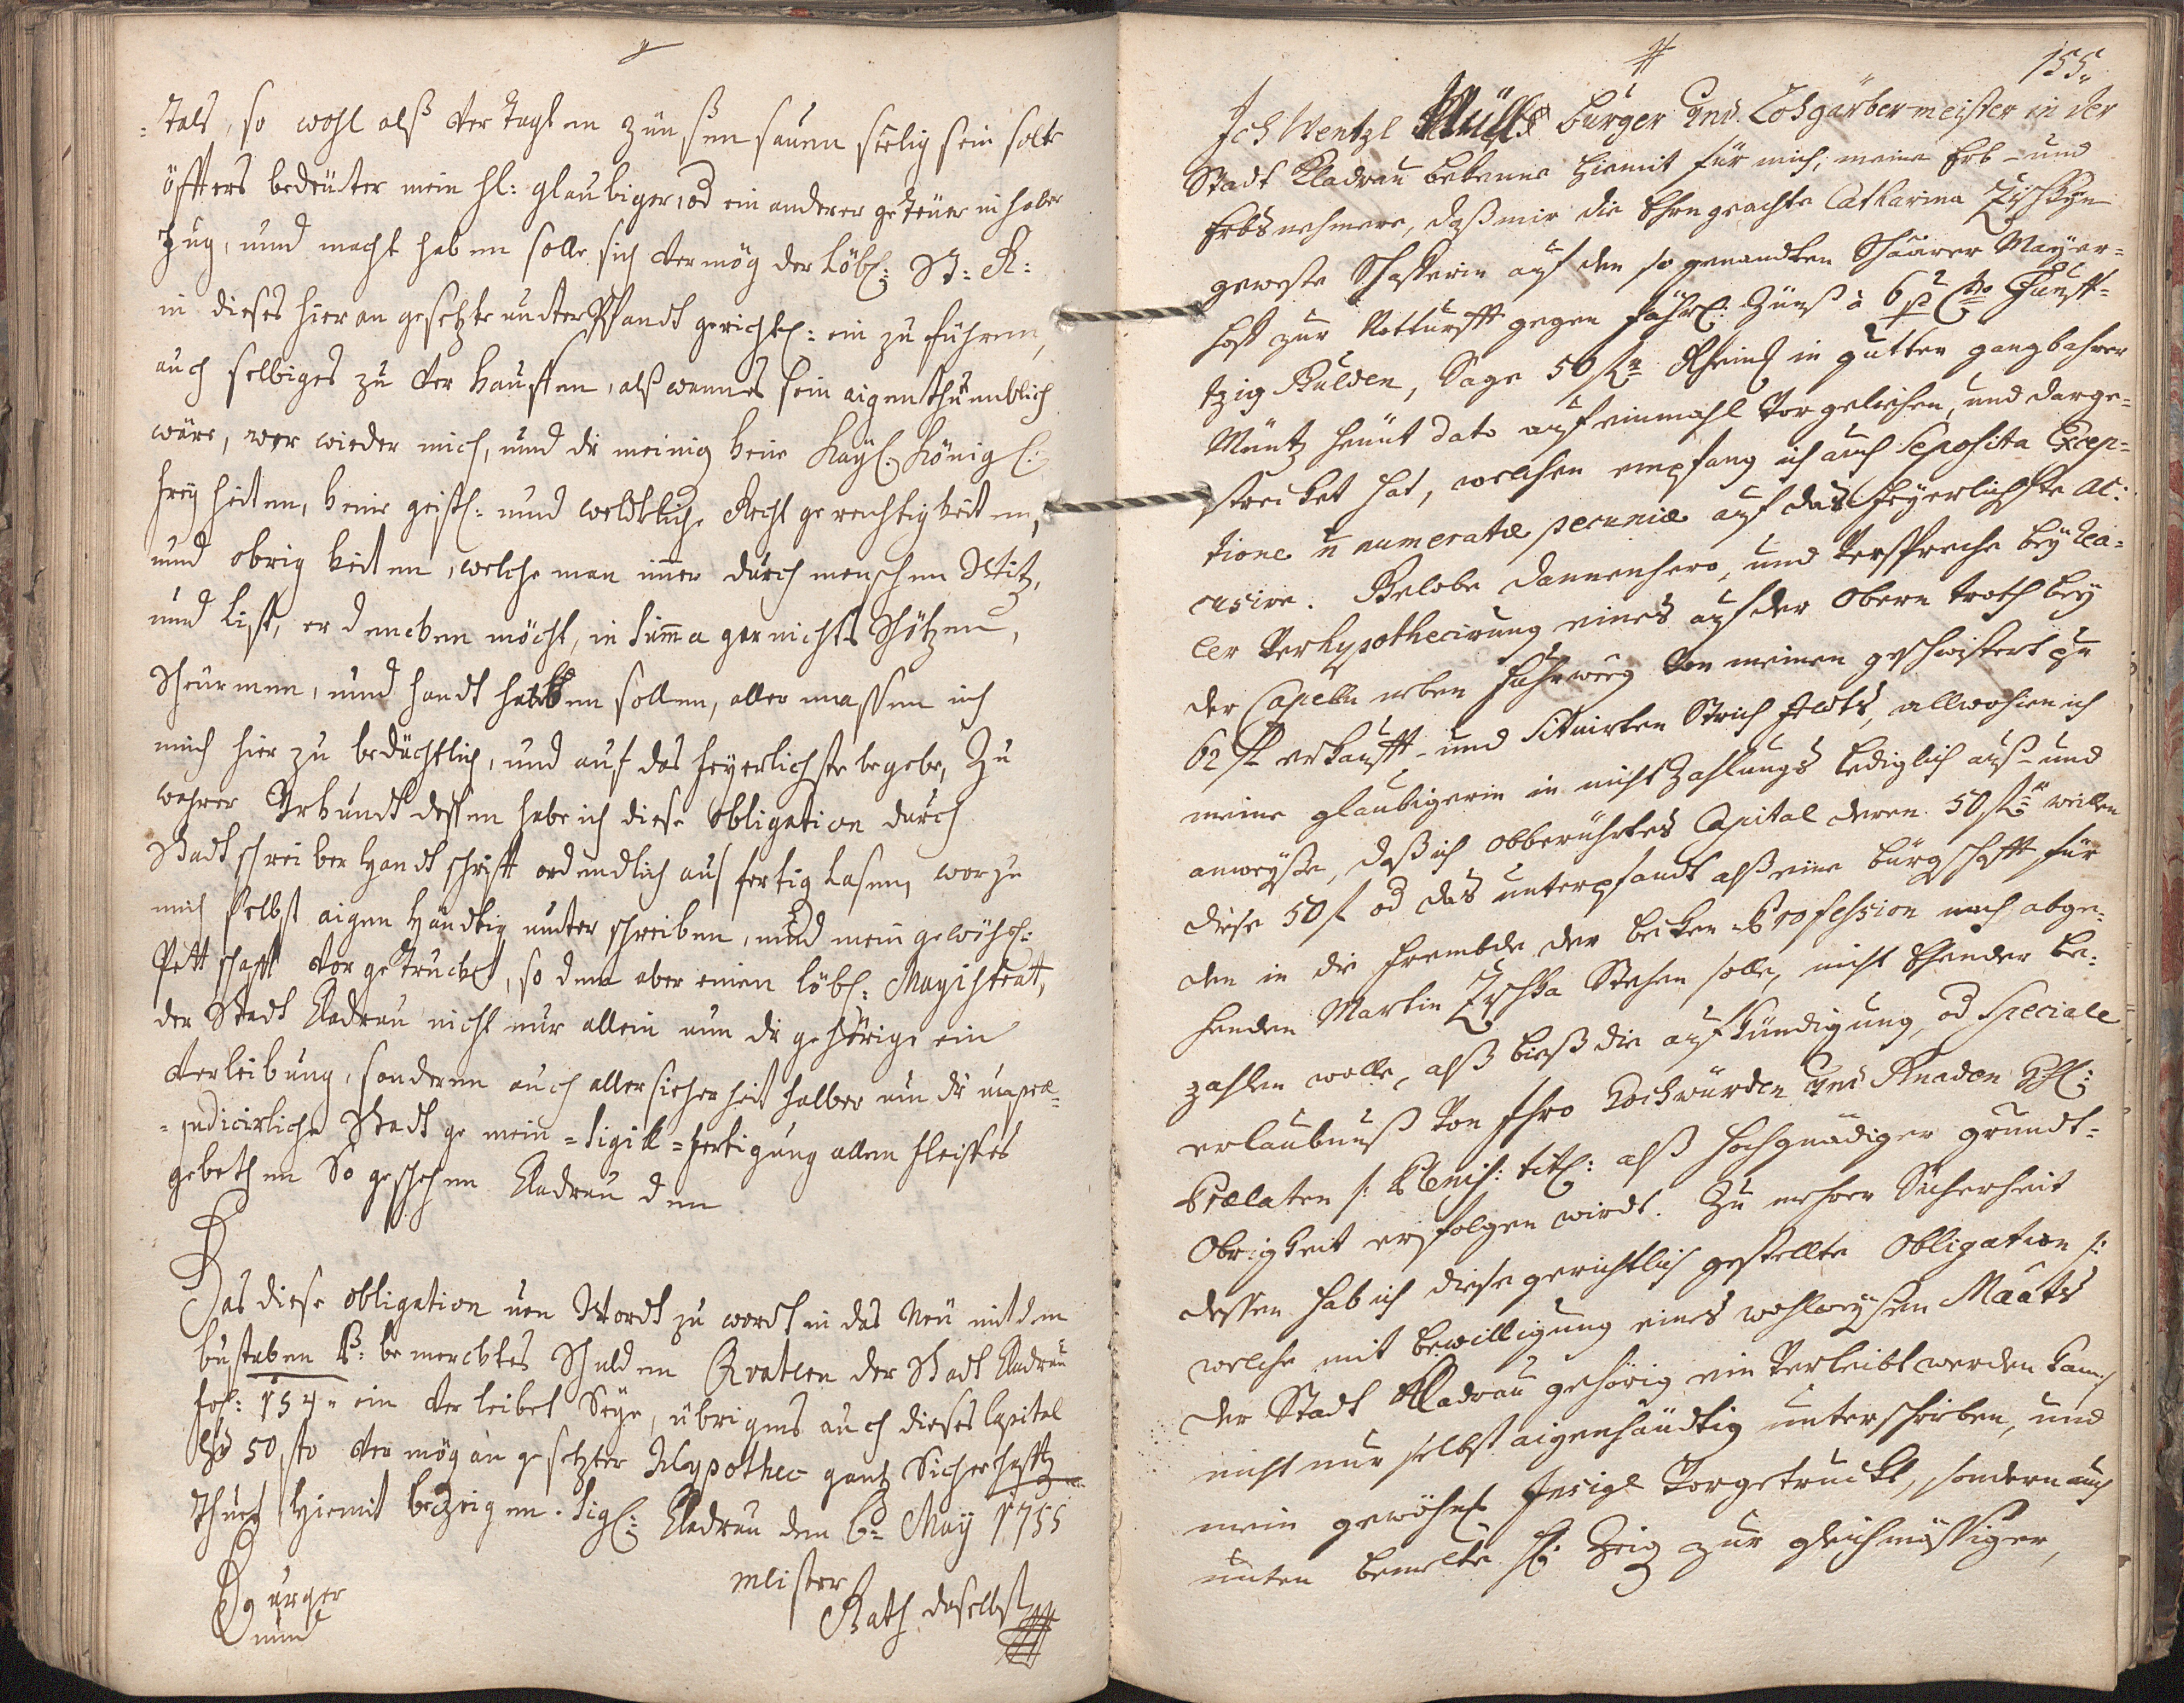 =tals, so wohl alß der Tagl en zünßen saumseelig sein solte
öffters bedeuter mein hl: glaubiger, od ein anderer getreuer inhaber
Fug, und macht haben solle sich vermög der löbl: St: R:
in dieses hieran gesetzte unterPfandt gerichtl: ein zu führen,
auch selbiges zu verkauffen, alß wann es sein aigenthumblich
wäre, wor wieder mich, und die meinig keine Kaÿl. Königl:
freÿheiten, keine geistl: und weldtliche Recht gerechtigkeiten,
und obrigkeiten, welche man imer durch menschen Witz,
und List, erdencken möcht, in Suma gar nichts Schützen,
Schirmen, und handthaben sollen, aller massen ich
mich hierzu bedächtlich, und auf das feÿerlichste begebe, Zu
wahrer Urkundt dessen habe ich diese obligation durch
Stadtschreiber Handtschrifft ordendlich ausfertig lasen, worzu
mich selbst aigen Händtig unterschreiben, und mein gewöhnl:
Pettschafft vorgetrucket, so dem aber einen löbl: Magistrat,
der Stadt Kladrau nicht nur allein umb die gehörige ein
verleibung, sonderen auch aller sicherheit halber um die unpræ=
=judicirliche Stadt gemein=Sigill=fertigung allen fleisses
gebethen So geschehen Kladrau den
Das diese obligation von Wordt zu wordt in das Neu mit dem
bustaben B: bemercktes Schulden Quatern der Stadt Kladrau
fol: 154" ein verleibet Seÿe, übrigens auch dieses Capital
50 fl vermög angesetzter Hÿpothec gantz Sicherhafft
thuet hiermit bezeigen. Sigl: Kladrau den 6= Maÿ 1755
Burger meister
und Rath daselbst
155"
Ich Wentzl Burger Und Lohgärbermeister in der
Stadt Kladrau bekenne hiemit für mich, meine Erb- und
Erbsnehmere, daß mir die Ehrngeachte Catharina Zischkÿn
geweste Schafferin auf den so genandten Maÿer=
hoff zur Notturfft gegen Jährl: Zünß à 6 p Cto Funff=
tzig Gulden, Sage 50 fl Rheinl in gutten gangbahrer
Müntz heunt dato auf einmahl vorgeliehen, und darge=
strecket hat, welchen empfang ich auch Seposita Excep=
tione n numeratæ pecuniæ auf das feÿerlichste ac:
cusire. Gelobe dannenhero, und verspreche beÿ rea=
ler Verhypothecirung eines auf der Obern trath beÿ
der Capelln neben Fuhrweeg von meinen geschwistert pr
62 fl erkaufft- und Situirten Strich feldts, allwohin ich
meine glaubigerin in nicht Zahlungs lediglich auß- und
anweÿße, daß ich obberührtes Capital deren 50 fl weillen
diese 50 fl od das unterpfandt alß eine bürgschafft für
den in die frembde der becken=Profession nach abge=
henden Martin Zischka Stehen solle, nicht Ehender be=
zahlen wolle, alß bieß die aufkündigung, od Speciale
erlaubnuß von Ihro Hochwürden Und Gnaden HH:
Prælaten /: Pleniss: titl: alß hochgnädiger grundt=
Obrigkeit erfolgen wirdt. Zu mehrer Sicherheit
dessen hab ich diese gerichtlich gestellte Obligation /:
welche mit bewilligung eines wohlweÿsen Maats
der Stadt Kladrau gehörig ein verleibt werden kan /:
nicht nur selbst aigenhändtig unterschrieben, und
mein gewöhnl Insigl vorgetruckt, sondern auch
unten benelte hl: Zeig zur gleichmässiger,